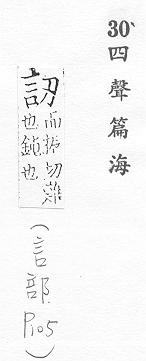 30、四聲篇海
訒
而振切難
也也
(言部 P105)